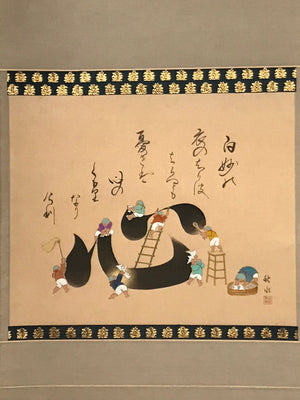 白妙の
衣のちりは
はらへとも
憂きは
心
の
くもり
なり
けり
秋水